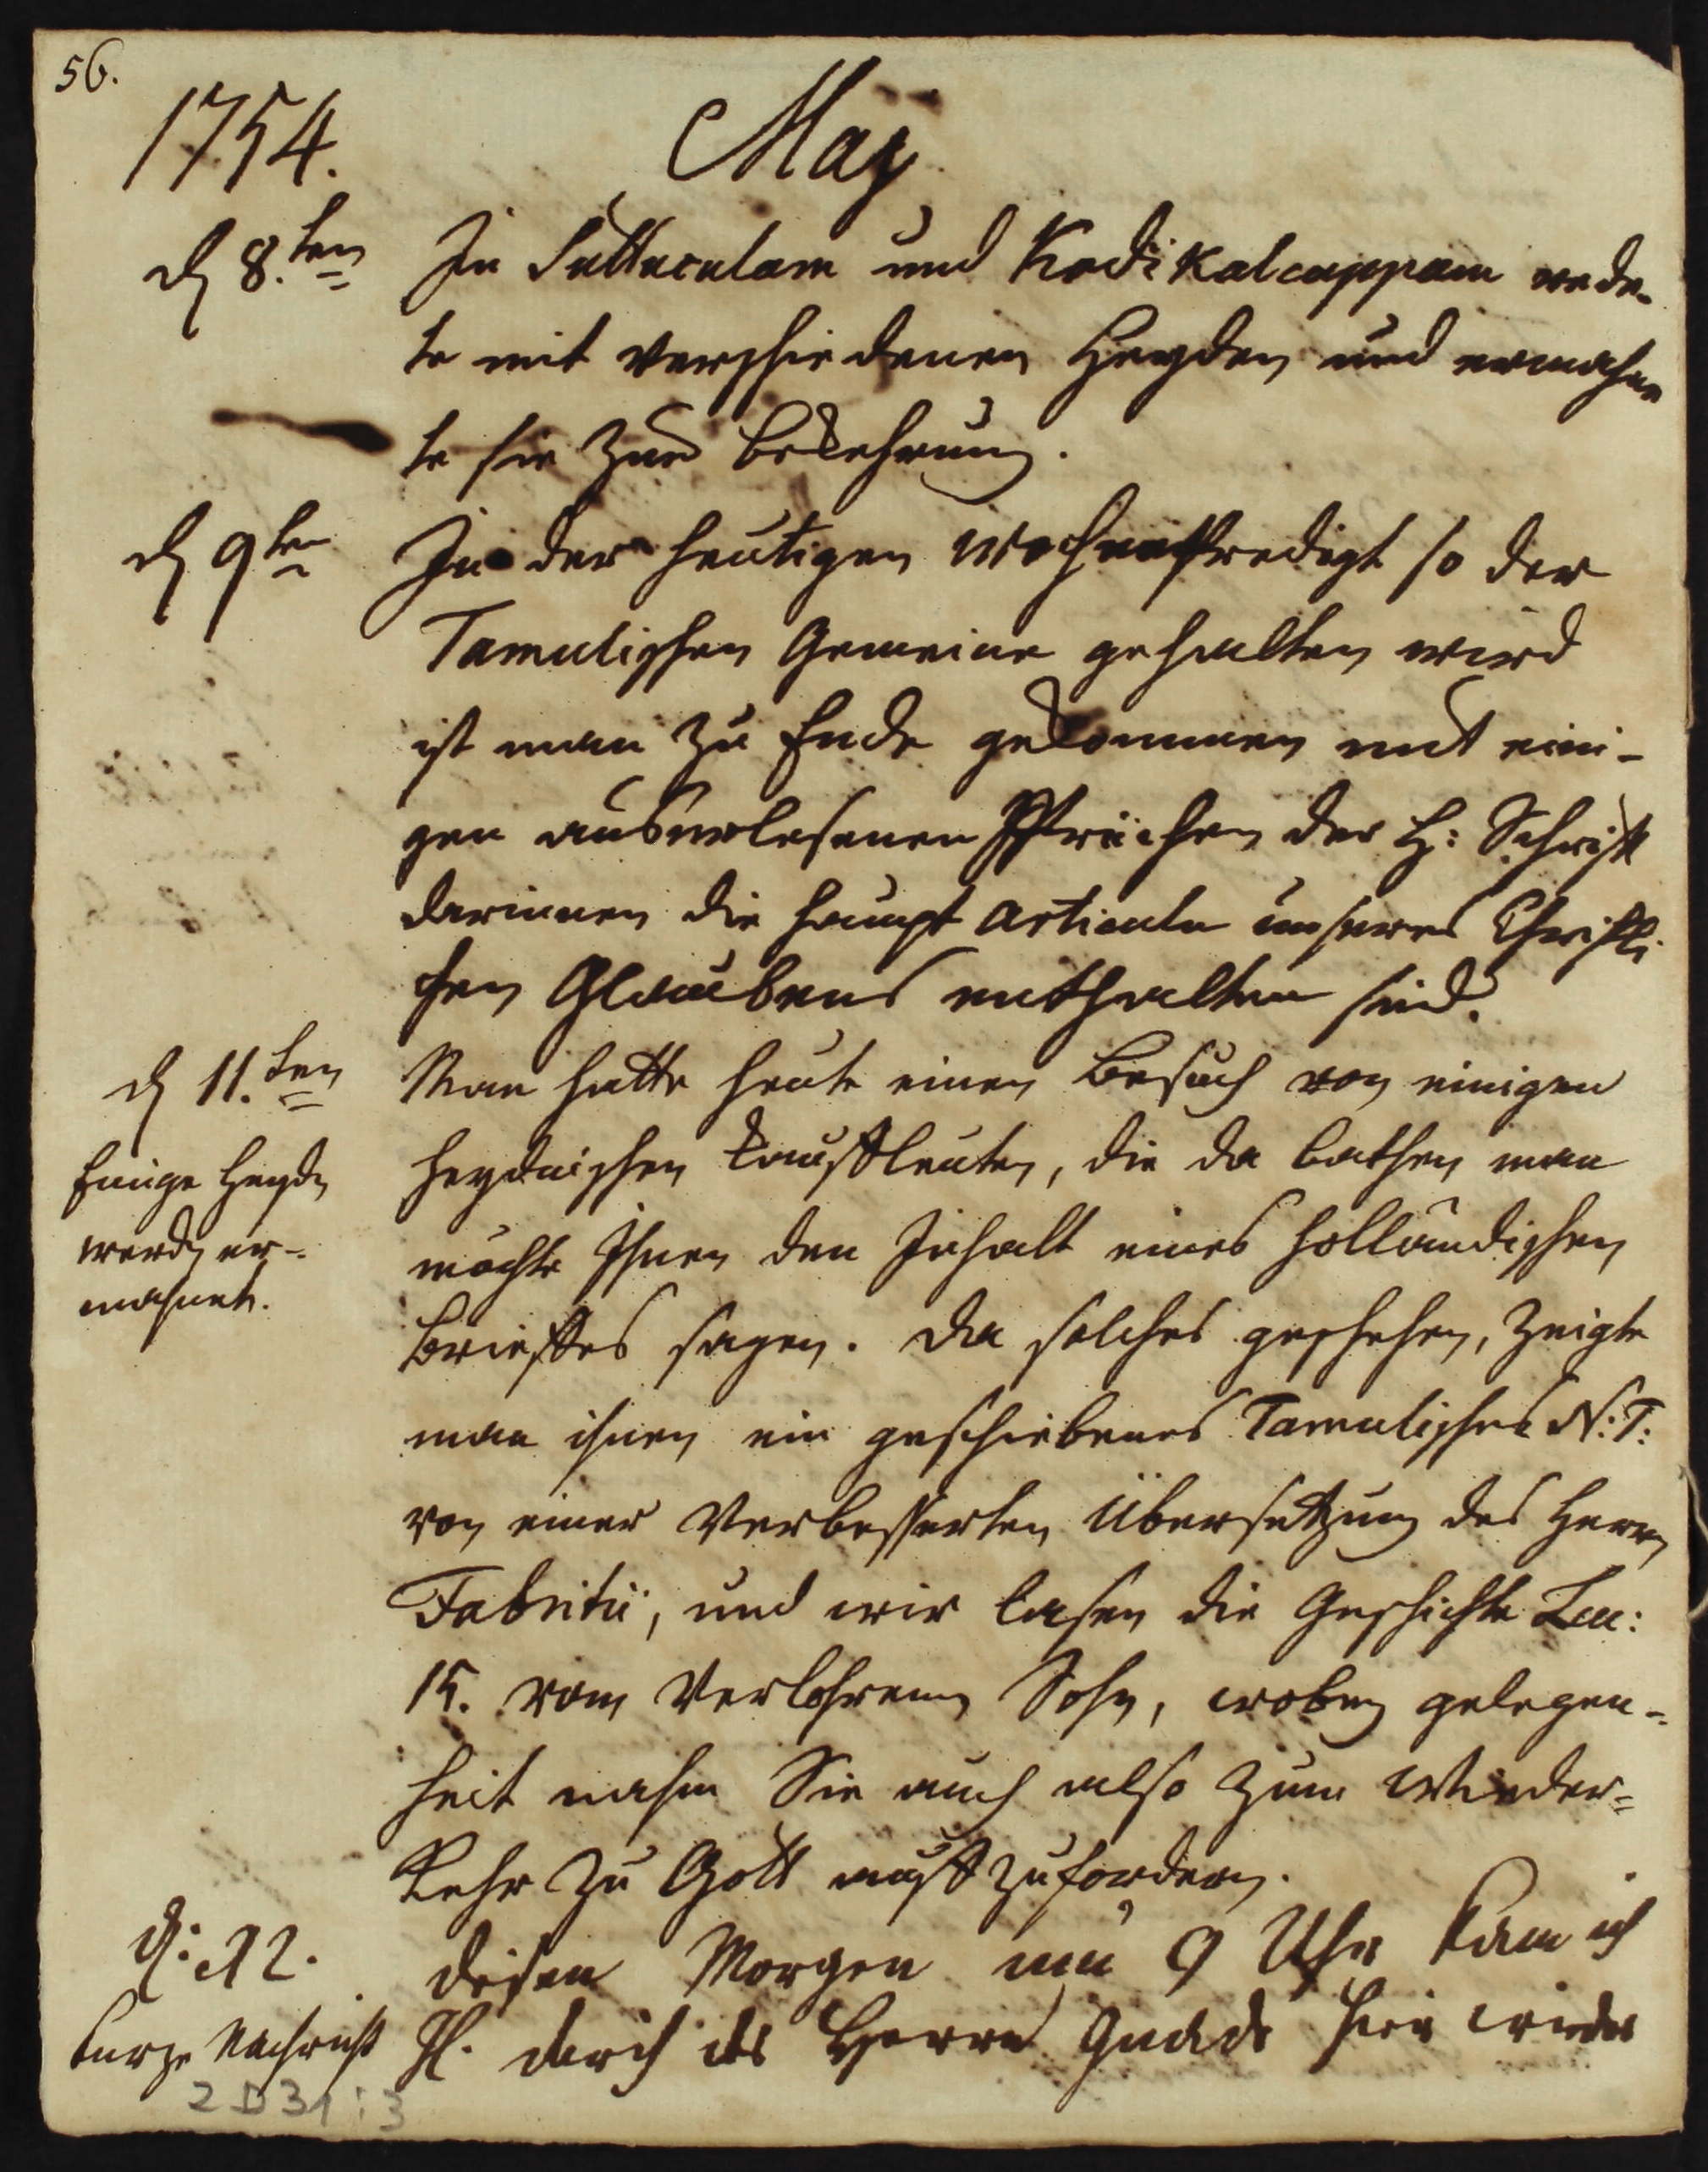 56.
1754. May
d 8.ten In Sattaculam und Kodikalcuppam rede-
te mit verschiedenen Heyden und ermahn
te sie zur bekehrung.
d 9ten In der heutigen wochenpredigt so der
Tamulischen Gemeine gehalten wird
ist man zu Ende gekommen mit eini-
gen auserlesenen Sprüchen der H: Schrifft
darinnen die haupt Articuln unseres Christli
chen Glaubens enthalten sind.
d 11.ten Man hatte heute einen besuch von einigen
Einige Heyden heydnischen kauffleuten, die da bathen man
werden er- möchte Ihnen den Inhalt eines holländischen
mahnet. brieffes sagen. da solches geschehen, zeigte
man ihnen ein geschriebenes Tamulisches N: T:
von einer verbesserten Übersetzung des Herrn
Fabritii, und wir lasen die Geschichte Luc:
15. vom verlohrenen Sohn, wobey gelegen-
heit nahm Sie auch also zum Wieder-
kehr zu Gott auffzufordern.
d: 12. diesen Morgen um 9 Uhr kam ich
kurze Nachricht Hl. durch des Herrn Gnade hier wieder
2 D 31 : 3